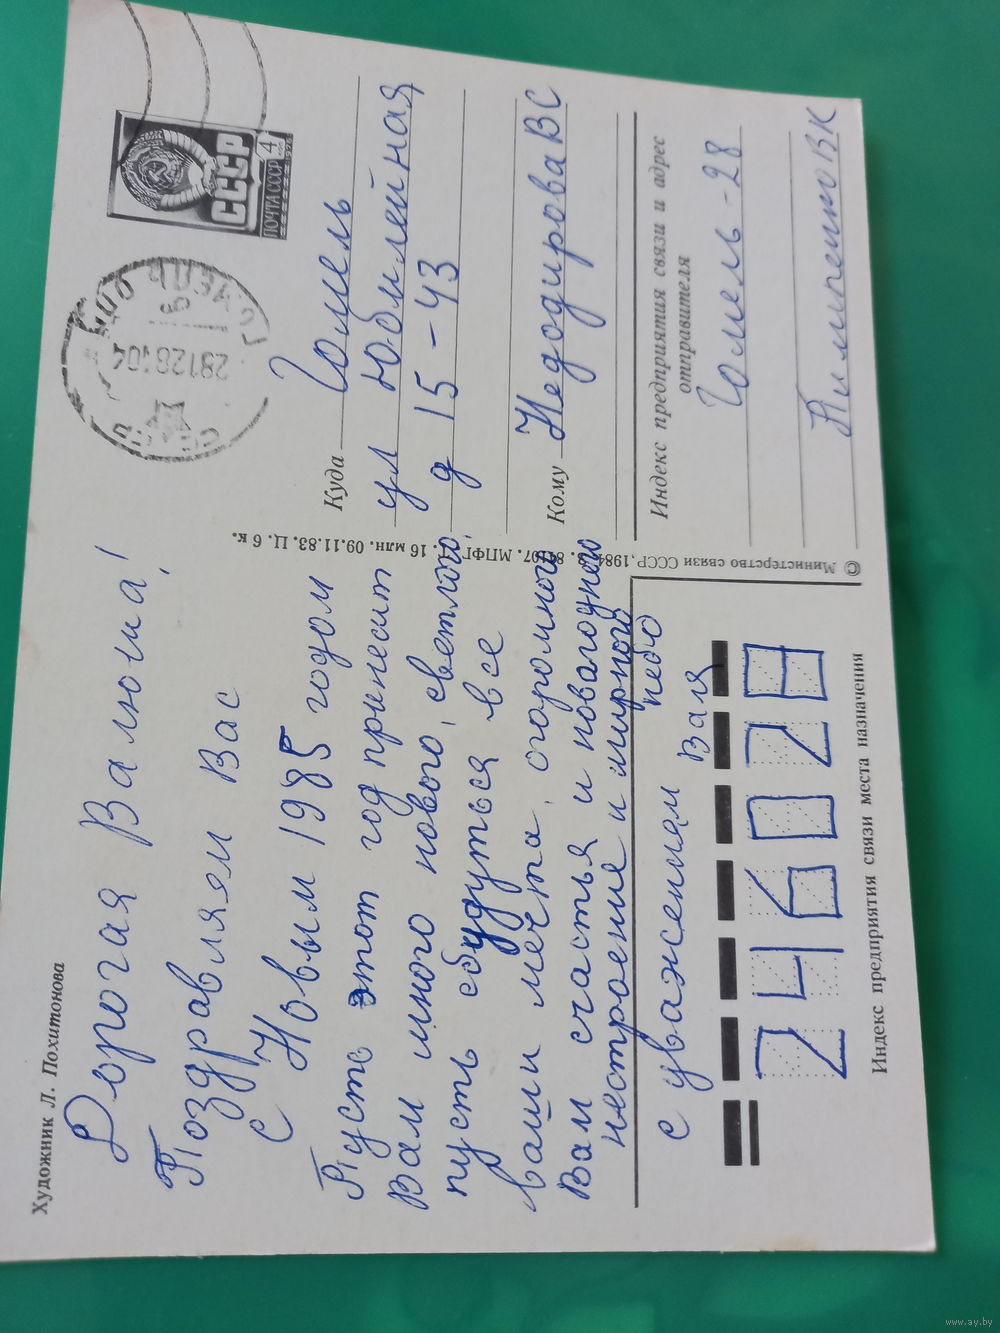 Художник Л. Похитонова
Дорогая Валюша!
Поздравляем Вас
с Новым 1985 годом
Пусть этот год принесит
Вам много нового, светлого,
пусть сбудуться все
ваши мечта. огромного
Вам счастья и новогоднего
нестроение и мирного
небо
с уважением Валя
246028
Индекс предприятия связи места назначения
© Министерство связи СССР, 1984. З. 84107. МПФГ. 16 млн. 09.11.83. Ц. 6 к.
СССР
ПОЧТА СССР 4
1976
281284 04
ГОМЕЛЬ
Куда Гомель
ул Юбилейная
д 15-43
Кому НедодироваВС
Индекс предприятия связи и адрес
отправителя
Гомель-28
ПилипенкоВК
www.ay.by